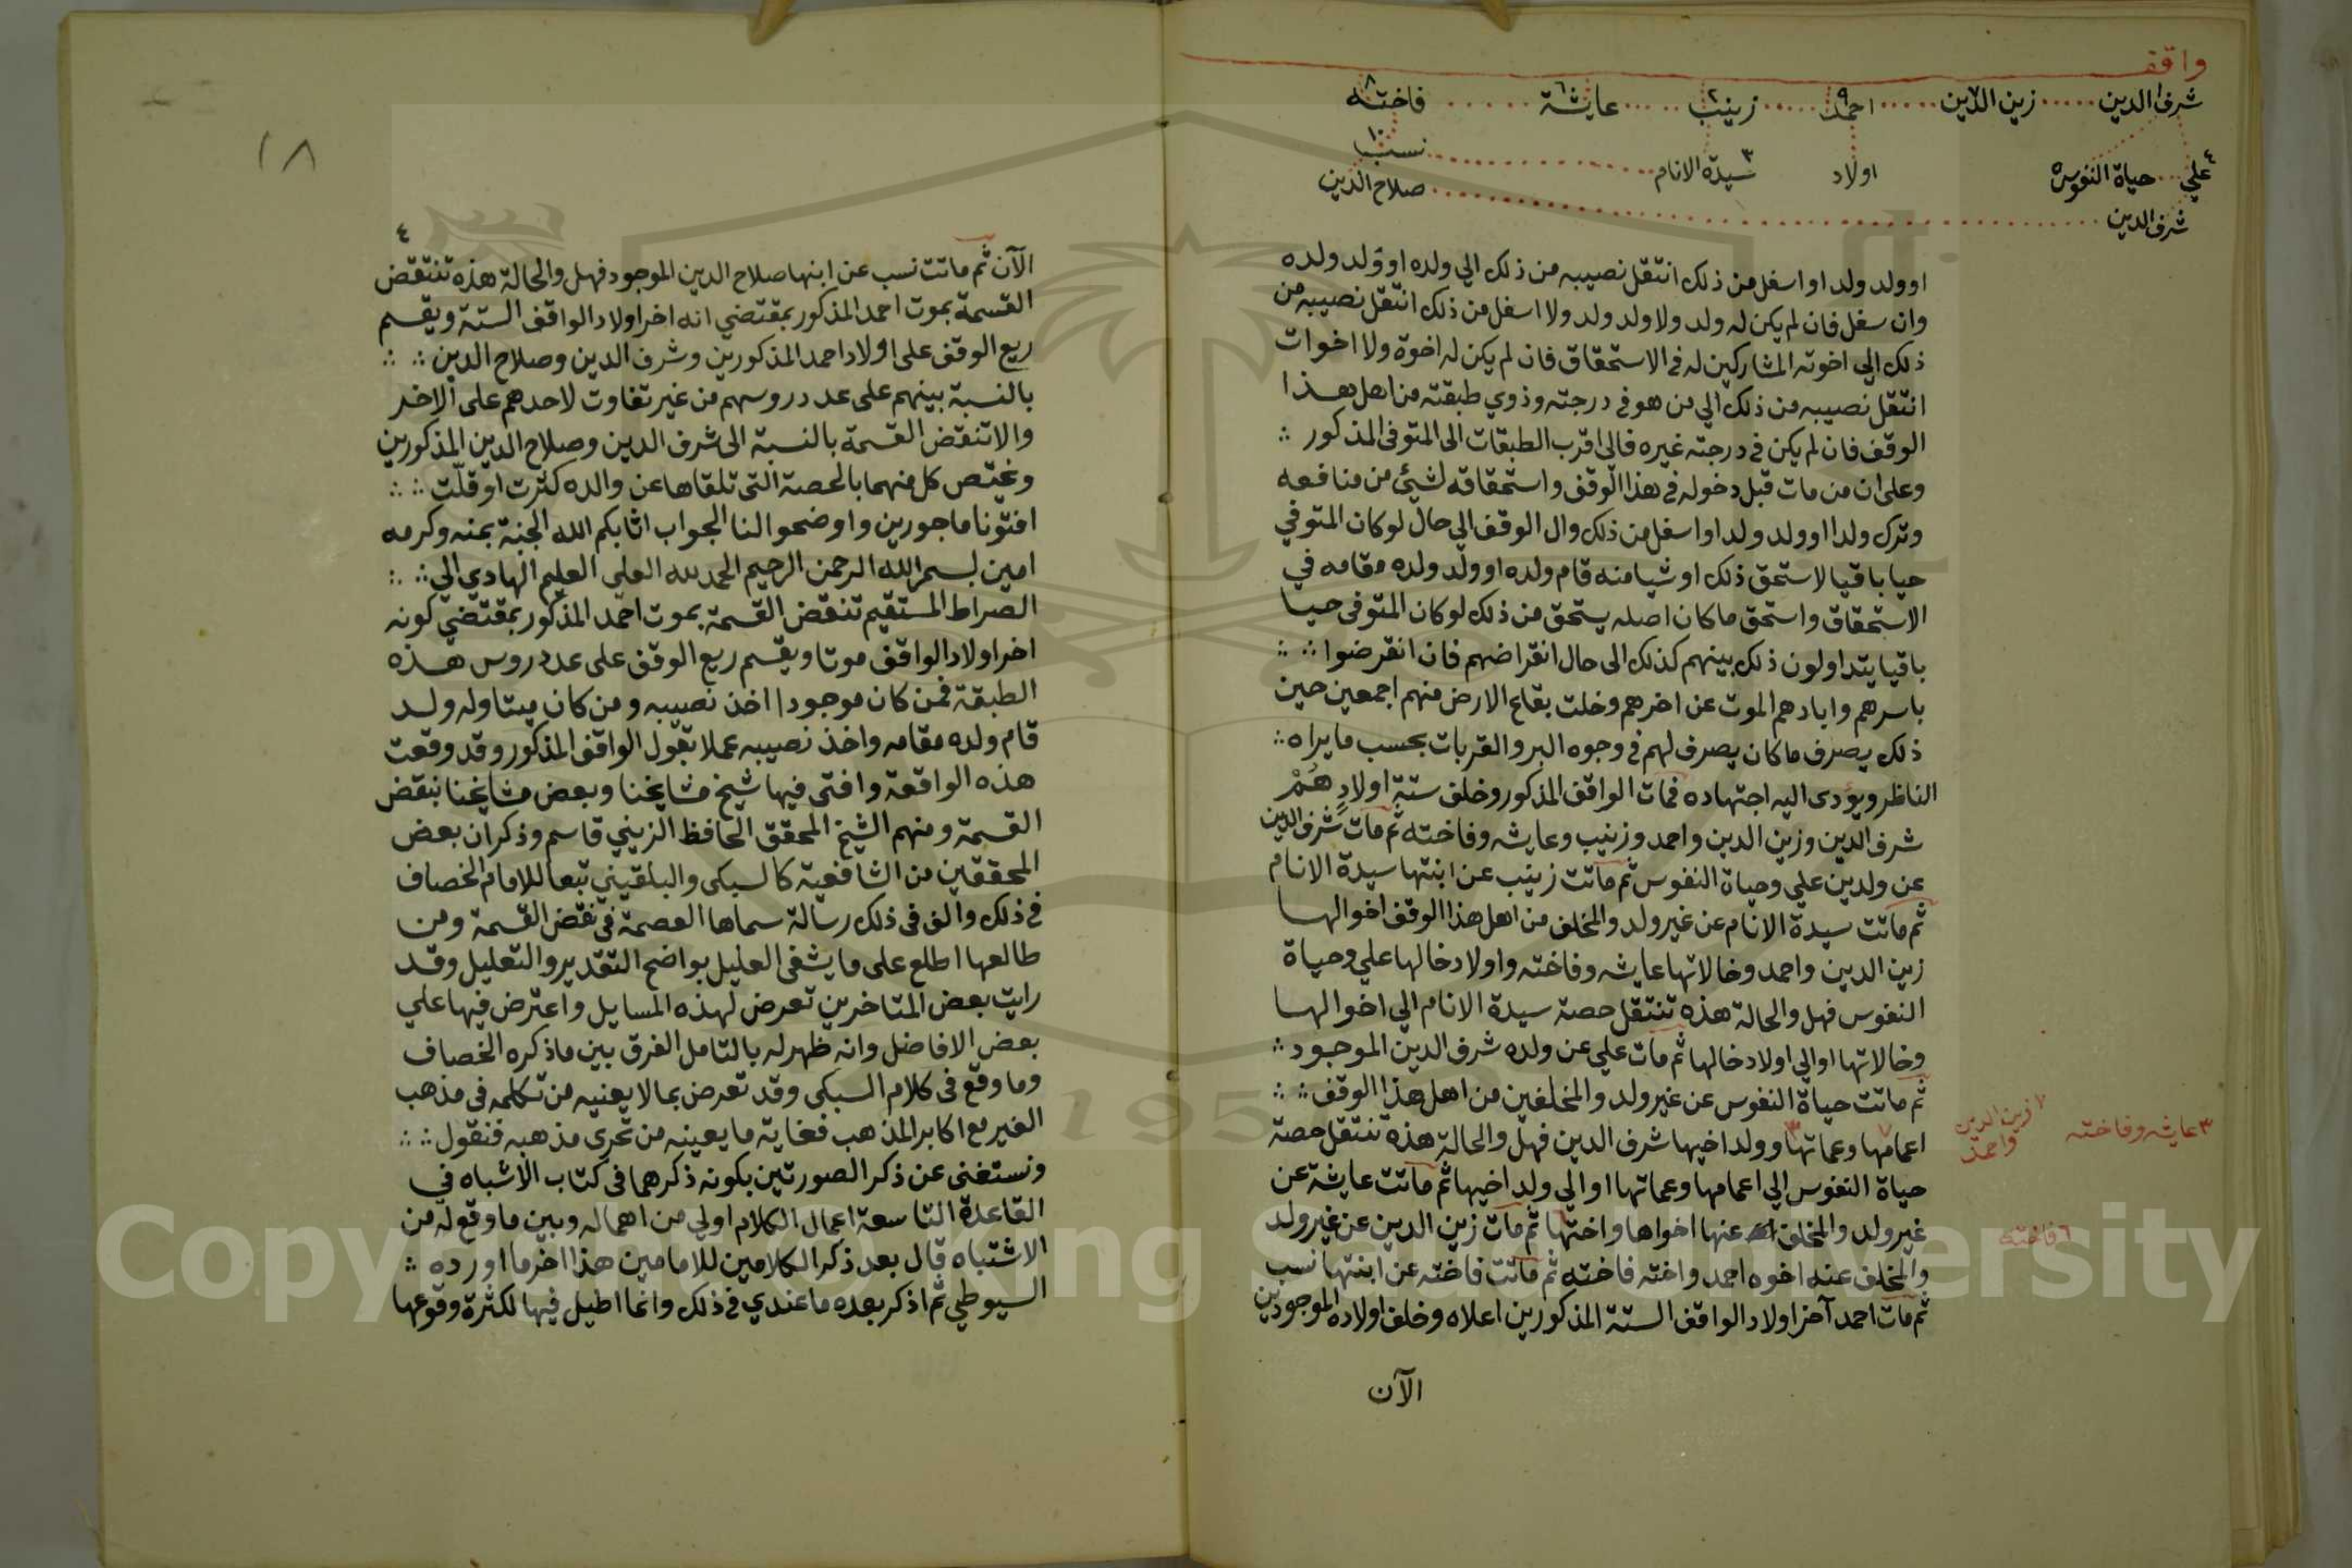 واقف
شرف الدين زين الدين احمد زينب عايشة فاختة
١ ٧ ٩ ٢ ٦ ٨
علي حياة النفوس اولاد سيدة الانام نسب
٤ ٥ ٣ ١٠
شرف الدين صلاح الدين
او ولد ولد او اسفل من ذلك انتقل نصيبه من ذلك الي ولده او ولد ولده
وان سفل فان لم يكن له ولد ولا ولد ولد ولا اسفل من ذلك انتقل نصيبه من
ذلك الي اخوته المشاركين له في الاستحقاق فان لم يكن له اخوة ولا اخوات
انتقل نصيبه من ذلك الي من هو في درجته وذوي طبقته من اهل هذا
الوقف فان لم يكن في درجته غيره فالى اقرب الطبقات الى المتوفى المذكور
وعلى ان من مات قبل دخوله في هذا الوقف واستحقاقه لشيئ من منافعه
وترك ولدا او ولد ولد او اسفل من ذلك وال الوقف الي حال لو كان المتوفي
حيا باقيا لاستحق ذلك او شيا منه قام ولده او ولد ولده مقامه في
الاستحقاق واستحق ما كان اصله يستحق من ذلك لو كان المتوفى حيا
باقيا يتداولون ذلك بينهم كذلك الى حال انقراضهم فان انقرضوا
باسرهم وابادهم الموت عن اخرهم وخلت بقاع الارض منهم اجمعين حين
ذلك يصرف ما كان يصرف لهم في وجوه البر والقربات بحسب ما يراه
الناظر ويؤدى اليه اجتهاده فمات الواقف المذكور وخلف ستة اولاد هم
شرف الدين وزين الدين واحمد وزينب وعايشه وفاخته ثم مات شرف الدين
عن ولدين علي وحياة النفوس ثم ماتت زينب عن ابنتها سيدة الانام
ثم ماتت سيدة الانام عن غير ولد والمخلف من اهل هذا الوقف اخوالها
زين الدين واحمد وخالاتها عايشه وفاخته واولاد خالها علي وحياة
النفوس فهل والحالة هذه تنتقل حصة سيدة الانام الي اخوالها
وخالاتها او الي اولاد خالها ثم مات علي عن ولده شرف الدين الموجود
ثم ماتت حياة النفوس عن غير ولد والمخلفين من اهل هذا الوقف
اعمامها وعماتها وولد اخيها شرف الدين فهل والحالة هذه تنتقل حصة
٧ زين الدين واحمد
٣ عايشه وفاخته
حياة النفوس الي اعمامها وعماتها او الي ولد اخيها ثم ماتت عايشة عن
غير ولد والمخلف عنها اخواها واختها ثم مات زين الدين عن غير ولد
٦ فاخته
والمخلف عنه اخوه احمد واخته فاخته ثم ماتت فاخته عن ابنتها نسب
ثم مات احمد آخر اولاد الواقف الستة المذكورين اعلاه وخلف اولاده الموجودين
الآن
١٨
٤
الآن ثم ماتت نسب عن ابنها صلاح الدين الموجود فهل والحالة هذه تنتقض
القسمة بموت احمد المذكور بمقتضي انه اخر اولاد الواقف الستة ويقسم
ريع الوقف على اولاد احمد المذكورين وشرف الدين وصلاح الدين
بالنسبة بينهم على عدد روسهم من غير تفاوت لاحدهم على الاخر
والا تنقض القسمة بالنسبة الى شرف الدين وصلاح الدين المذكورين
ويختص كل منهما بالحصة التي تلقاها عن والده كثرت او قلّت
افتونا ماجورين واوضحوا لنا الجواب اثابكم الله الجنة بمنه وكرمه
امين بسم الله الرحمن الرحيم الحمد لله العلي العليم الهادي الي
الصراط المستقيم تنقض القسمة بموت احمد المذكور بمقتضي كونه
اخر اولاد الواقف موتا ويقسم ريع الوقف على عدد روس هذه
الطبقة فمن كان موجودا اخذ نصيبه ومن كان ميتا وله ولد
قام ولده مقامه واخذ نصيبه عملا بقول الواقف المذكور وقد وقعت
هذه الواقعة وافتى فيها شيخ مشايخنا وبعض مشايخنا بنقض
القسمة ومنهم الشيخ المحقق الحافظ الزيني قاسم وذكر ان بعض
المحققين من الشافعية كالسبكى والبلقيني تبعا للامام الخصاف
في ذلك والف في ذلك رسالة سماها العصمة في نقض القسمة ومن
طالعها اطلع على ما يشفى العليل بواضح التقدير والتعليل وقد
رايت بعض المتاخرين تعرض لهذه المسايل واعترض فيها علي
بعض الافاضل وانه ظهر له بالتامل الفرق بين ما ذكره الخصاف
وما وقع في كلام السبكى وقد تعرض بما لا يعنيه من تكلمه في مذهب
الغير مع اكابر المذهب فغاية ما يعينه من تحرى مذهبه فنقول
ونستغنى عن ذكر الصورتين بكونه ذكرهما في كتاب الاشباه في
القاعدة التاسعة اعمال الكلام اولي من اهماله وبين ما وقع له من
الاشتباه قال بعد ذكر الكلامين للامامين هذا اخر ما اورده
السيوطي ثم اذكر بعده ما عندي في ذلك وانما اطيل فيها لكثرة وقوعها
Copyright © King Saud University
1957